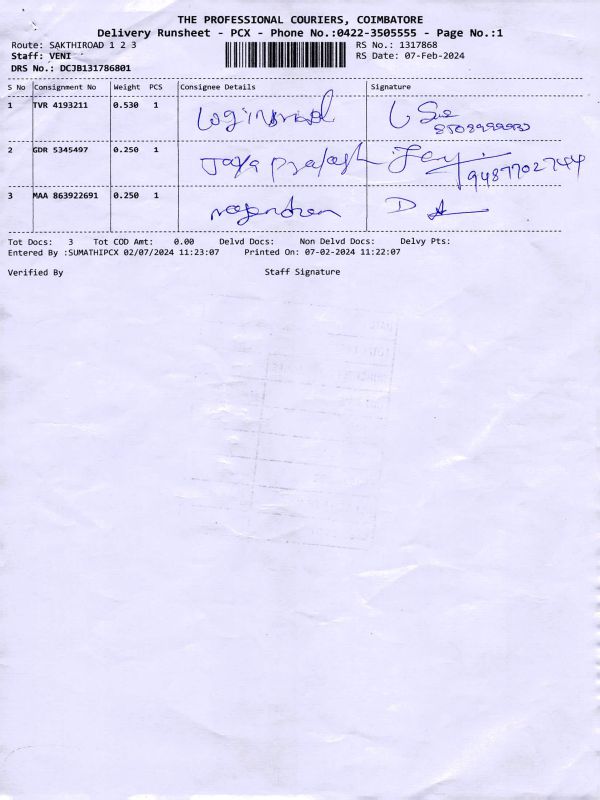 THE PROFESSIONAL COURIERS, COIMBATORE
Delivery Runsheet - PCX - Phone No.:0422-3505555 - Page No.:1
Route: SAKTHIROAD 1 2 3 RS No.: 1317868
Staff: VENI RS Date: 07-Feb-2024
DRS No.: DCJB131786801
S No Consignment No Weight PCS Consignee Details Signature
1 TVR 4193211 0.530 1
2 GDR 5345497 0.250 1 Jaya Prakash 9487702744
3 MAA 863922691 0.250 1 D
Tot Docs: 3 Tot COD Amt: 0.00 Delvd Docs: Non Delvd Docs: Delvy Pts:
Entered By :SUMATHIPCX 02/07/2024 11:23:07 Printed On: 07-02-2024 11:22:07
Verified By Staff Signature